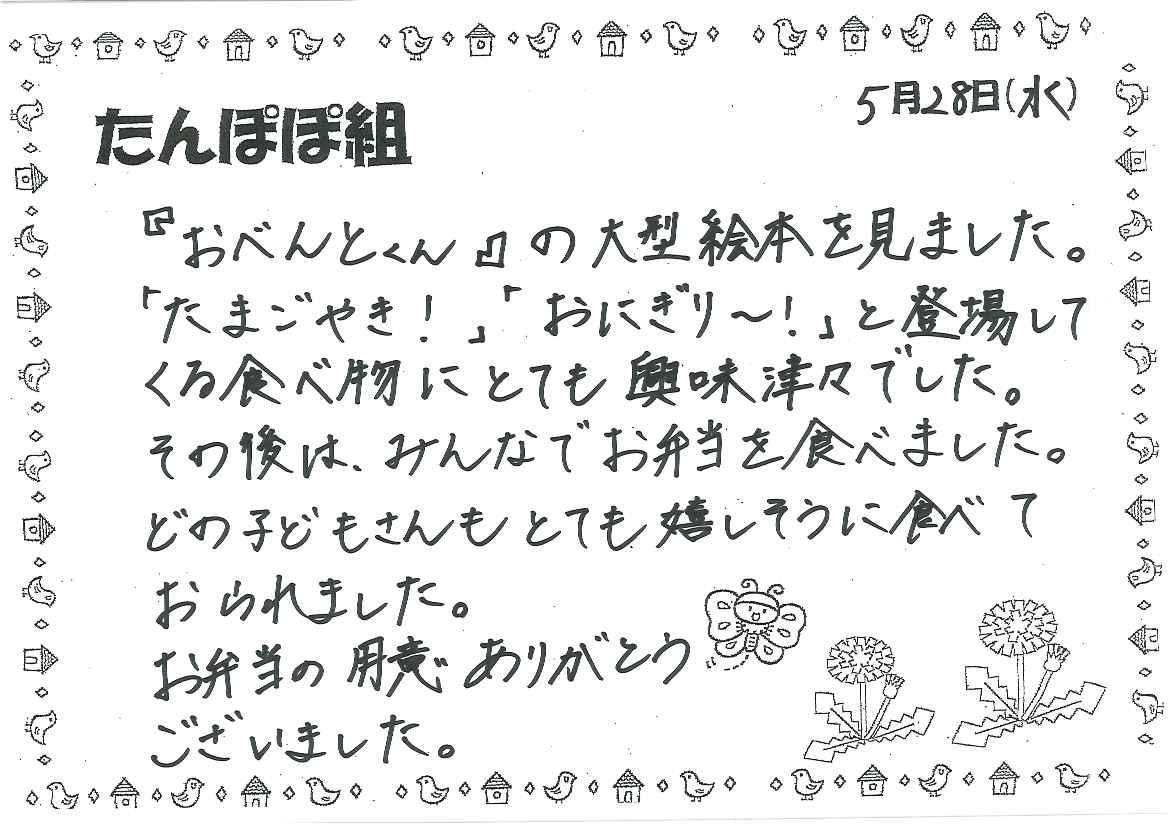 5月28日(水)
たんぽぽ組
『おべんとくん』の大型絵本を見ました。
「たまごやき!」「おにぎり～!」と登場して
くる食べ物にとても興味津々でした。
その後は、みんなでお弁当を食べました。
どの子どもさんもとても嬉しそうに食べて
おられました。
お弁当の用意ありがとう
ございました。